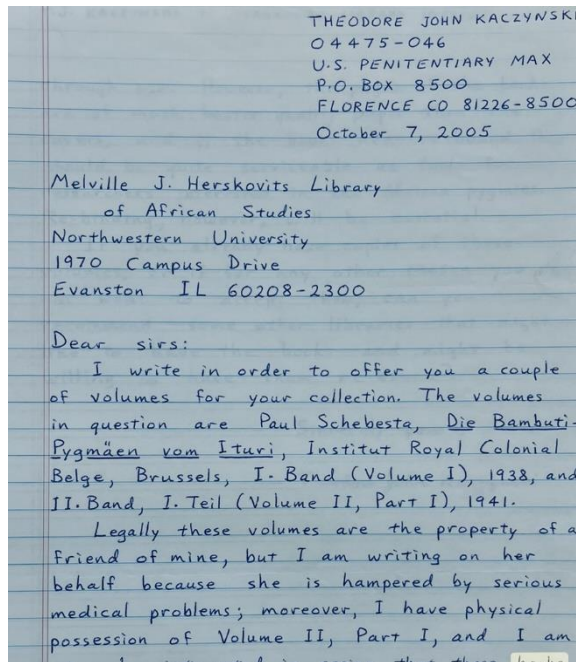 THEODORE JOHN KACZYNSKI
04475-046
U.S. PENITENTIARY MAX
P.O. BOX 8500
FLORENCE CO 81226-8500
October 7, 2005
Melville J. Herskovits Library
of African Studies
Northwestern University
1970 Campus Drive
Evanston IL 60208-2300
Dear sirs:
I write in order to offer you a couple
of volumes for your collection. The volumes
in question are Paul Schebesta, Die Bambuti-
Pygmäen vom Ituri, Institut Royal Colonial
Belge, Brussels, I. Band (Volume I), 1938, and
II. Band, I. Teil (Volume II, Part I), 1941.
Legally these volumes are the property of a
friend of mine, but I am writing on her
behalf because she is hampered by serious
medical problems; moreover, I have physical
possession of Volume II, Part I, and I am